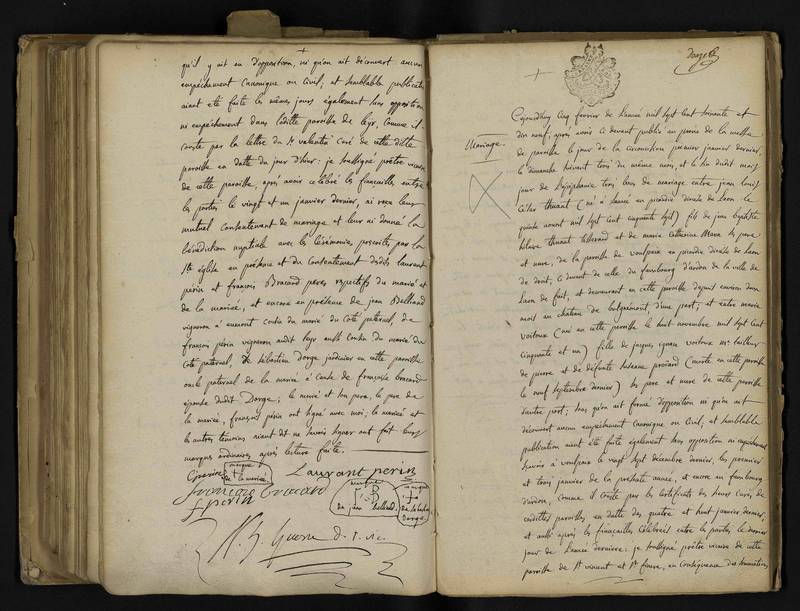 qu'il y ait eu d'opposition, ni qu'on ait découvert aucun
empêchement Canonique ou Civil, et semblable publication
aiant été faite les mêmes jours également sans opposition
ni empêchement dans laditte paroisse de leyr, comme il
conste par la lettre du Sr valentin Curé de cette ditte
paroisse en datte du jour d'hier: je soussigné prêtre vicaire
de cette paroisse, après avoir célébré les fiançailles entre
les parties le vingt et un janvier dernier, ai reçu leur
mutuel Consentement de mariage et leur ai donné la
bénédiction nuptiale avec les Cérémonies prescrites par la
Ste église en présence et du Consentement desdits laurant
perin et françois Bracard peres respectifs du marié et
de la mariée, et encore en présence de jean Belliard
vigneron à Cousin du marié du Coté paternel, de
françois perin vigneron audit leyr aussi Cousin du marié du
Coté paternel, de sébastien Dorge jardinier en cette paroisse
oncle paternel de la mariée à Cause de françoise bracard
épouse dudit Dorge; le marié et son pere, le pere de
la mariée, françois perin ont signé avec moi; la mariée et
les autres témoins aiant dit ne savoir signer ont fait leurs
marques ordinaires après lecture faite.
marque
de la mariée
Laurant perin
francois bracard
f perin
marque
de jean Belliard.
marque
de sebastien
Dorge
Mariage.
Cejourdhuy Cinq fevrier de l'année mil sept Cent soixante et
dix neuf, après avoir cy devant publié au prone de la messe
de paroisse le jour de la circoncision premier janvier dernier,
le dimanche suivant trois du même mois, et le six dudit mois
jour de l'epiphanie trois bans de mariage entre jean louis
César thuant (né à Laon en picardie diocèse de Laon le
quinze aoust mil sept Cent Cinquante sept) fils de jean baptiste
hilaire thuant et de marie Catherine ses pere
et mere, de la paroisse de en picardie diocèse de Laon
de droit, Cy devant de celle du faubourg d'ardon de la ville de
Laon de fait, et demeurant en cette paroisse depuis environ deux
mois au château de d'une part; et entre marie
voitoux (née en cette paroisse le huit novembre mil sept Cent
Cinquante et un) fille de jacques ignace voitoux me tailleur
de pierre et de défunte (morte en cette paroisse
le neuf septembre dernier) ses pere et mere de cette paroisse
d'autre part; sans qu'on ait formé d'opposition ni qu'on ait
découvert aucun empêchement Canonique ou Civil; et semblable
publication aiant été faite également sans opposition ni empêchement
savoir à le vingt sept décembre dernier, les premier
et trois janvier de la présente année, et encore au faubourg
d'ardon, comme il conste par les Certificats des sieurs Curés de
cesdittes paroisses en datte des quatre et huit janvier dernier;
et aussi après les fiançailles Célébrées entre les parties le dernier
jour de l'année dernière: je soussigné prêtre vicaire de cette
paroisse de St vincent et St fiacre, en Conséquence des